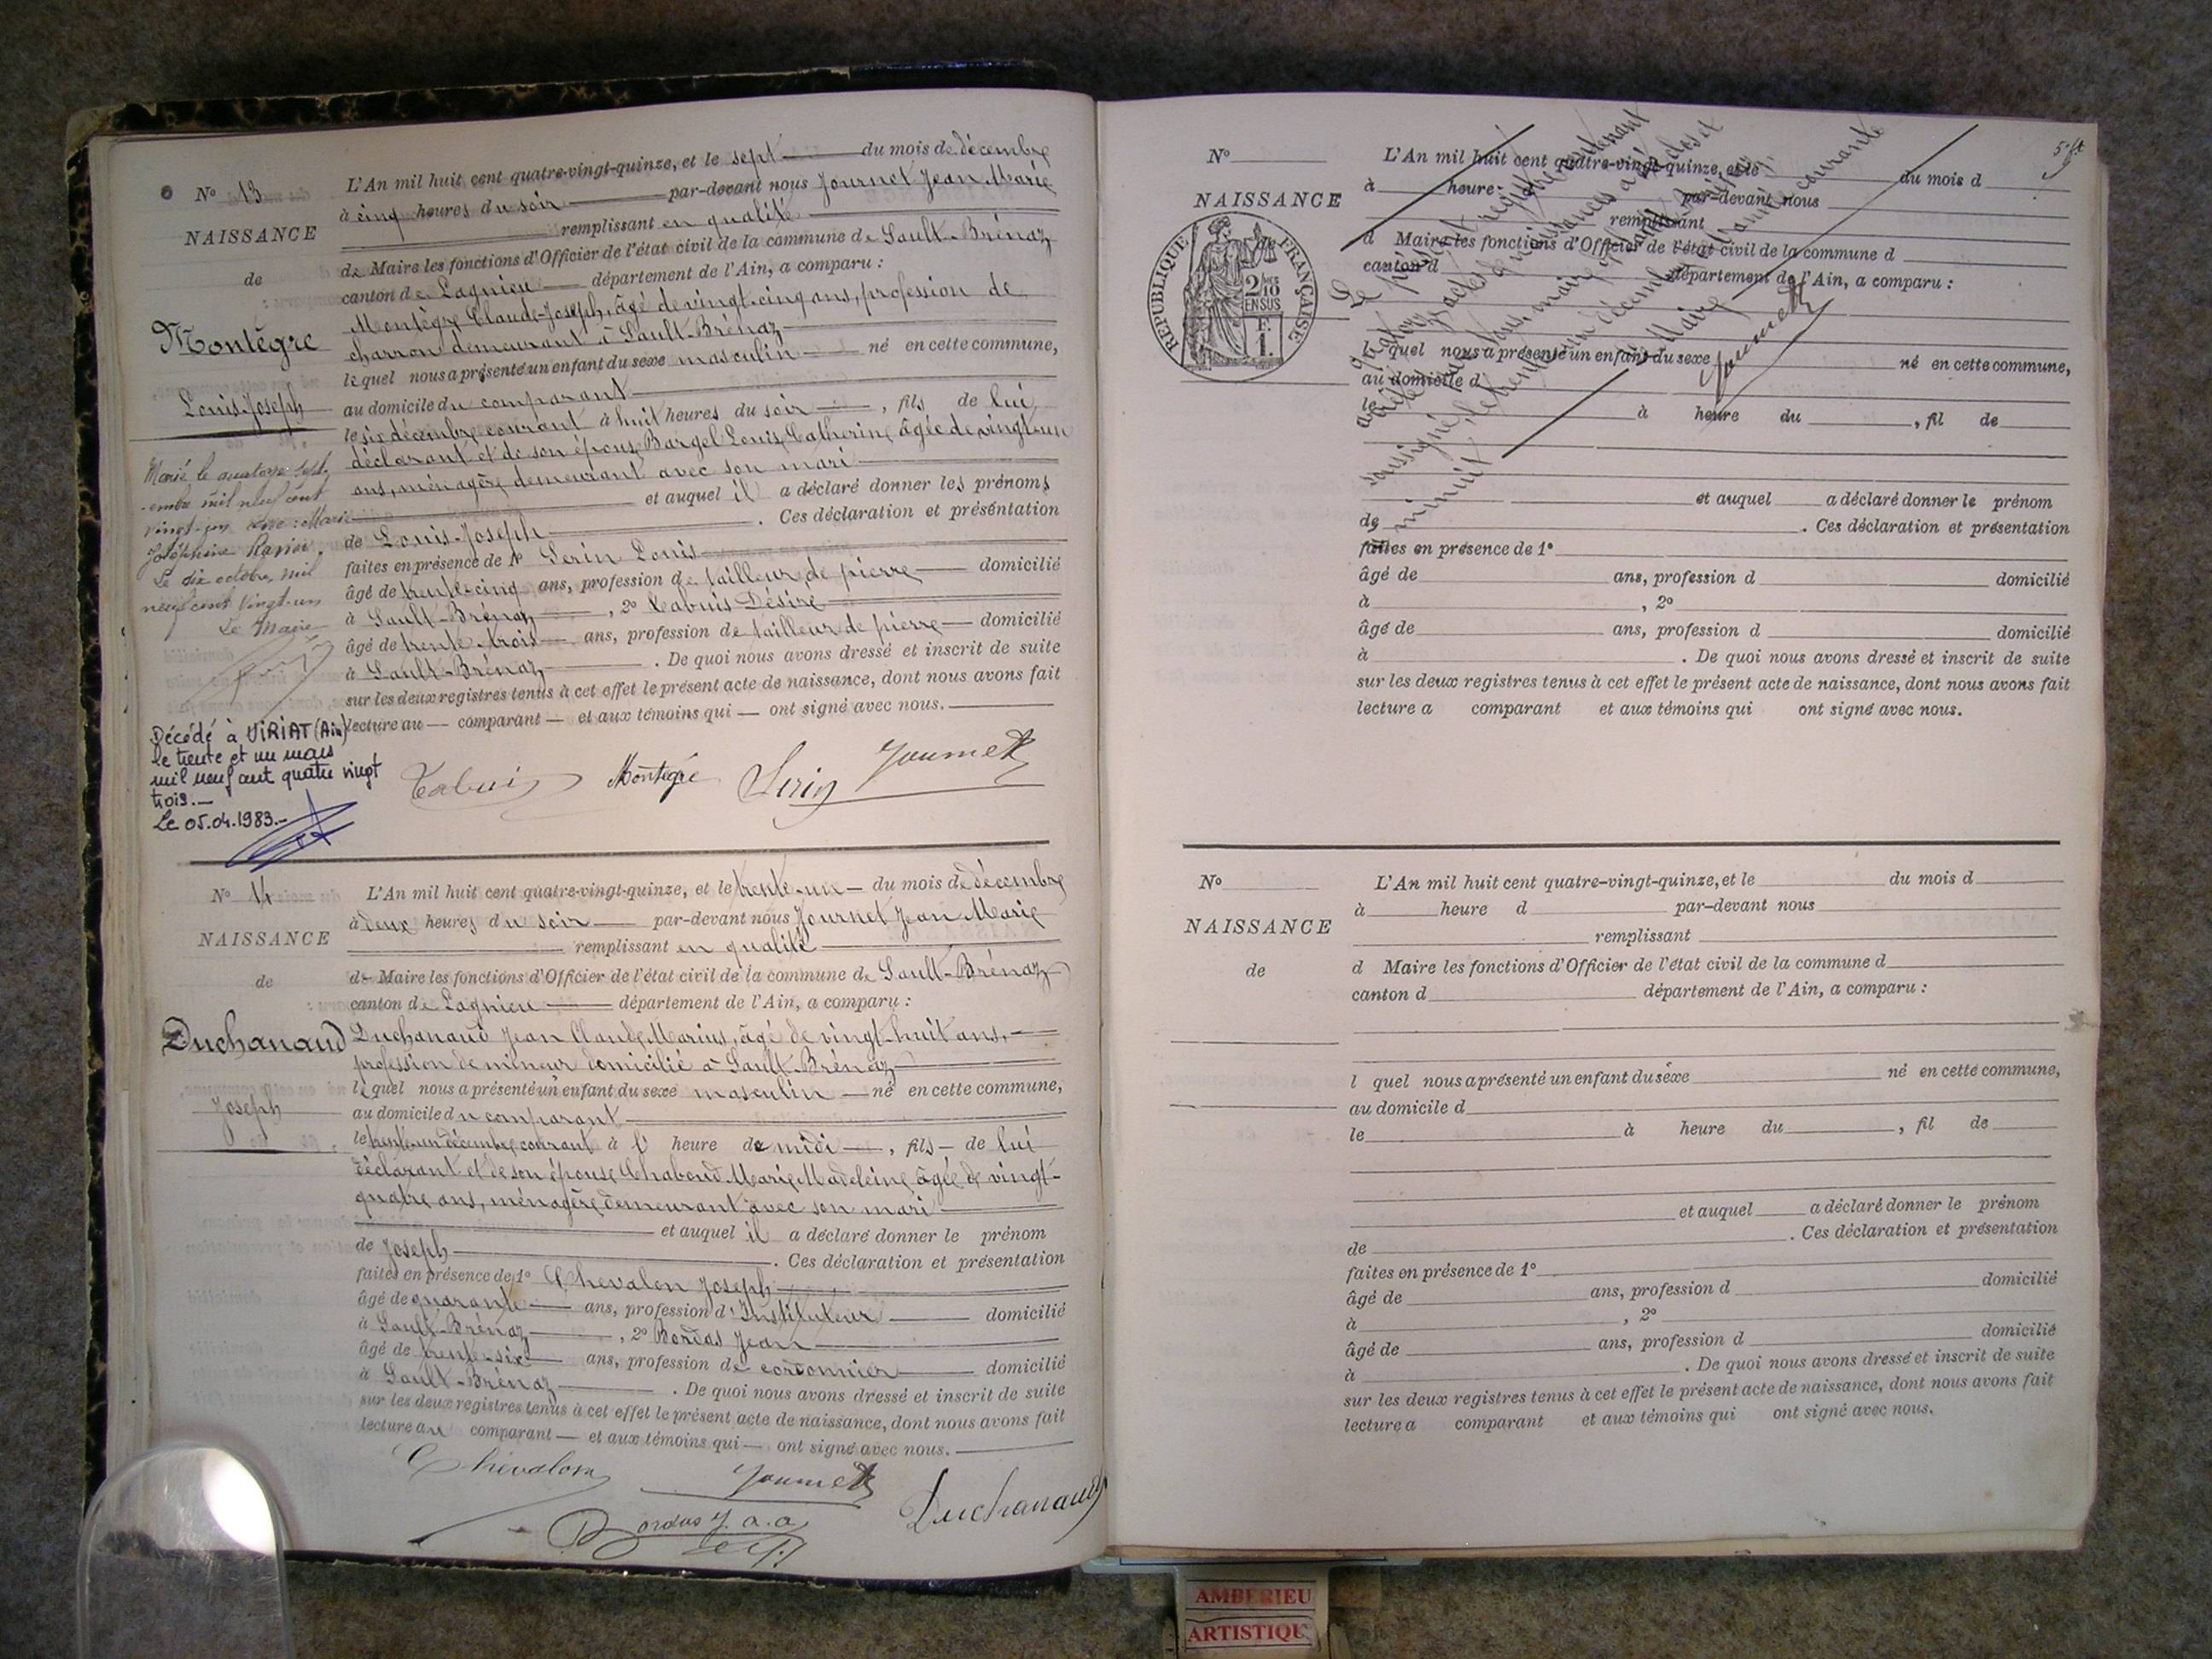 N° 13
NAISSANCE
de
Montègre
Louis-Joseph
Marié le quatorze sept-
-embre mil neuf cent
vingt-un avec : Marie
Joséphine
Le dix octobre mil
neuf cent vingt-un
Le Maire
Décédé à VIRIAT (Ain)
le trente et un mars
mil neuf cent quatre vingt
trois.-
Le 05.04.1983.-
L'An mil huit cent quatre-vingt-quinze, et le sept du mois de décembre
à cinq heures du soir par-devant nous Journet Jean Marie
remplissant en qualité
de Maire les fonctions d'Officier de l'état civil de la commune de Sault-Brénaz
canton de Lagnieu département de l'Ain, a comparu :
Montègre Claude-Joseph, âgé de vingt-cinq ans, profession de
charron demeurant à Sault-Brénaz
lequel nous a présenté un enfant du sexe masculin né en cette commune,
au domicile du comparant
le six décembre courant à huit heures du soir , fils de lui
déclarant et de son épouse Bargel Louise Catherine âgée de vingt-un
ans, ménagère demeurant avec son mari
et auquel il a déclaré donner les prénoms
de Louis-Joseph . Ces déclaration et présentation
faites en présence de 1° Serin Louis
âgé de trente-cinq ans, profession de tailleur de pierre domicilié
à Sault-Brénaz , 2° Cabuis Désiré
âgé de trente-trois ans, profession de tailleur de pierre domicilié
à Sault-Brénaz . De quoi nous avons dressé et inscrit de suite
sur les deux registres tenus à cet effet le présent acte de naissance, dont nous avons fait
lecture au comparant et aux témoins qui ont signé avec nous.
Cabuis Montègre Serin Journet
N° 14
NAISSANCE
de
Duchanaud
Joseph
L'An mil huit cent quatre-vingt-quinze, et le trente-un du mois de décembre
à deux heures du soir par-devant nous Journet Jean Marie
remplissant en qualité
de Maire les fonctions d'Officier de l'état civil de la commune de Sault-Brénaz
canton de Lagnieu département de l'Ain, a comparu :
Duchanaud Jean Claude Marius, âgé de vingt-huit ans,
profession de mineur domicilié à Sault-Brénaz
lequel nous a présenté un enfant du sexe masculin né en cette commune,
au domicile du comparant
le trente-un décembre courant à heure de midi , fils de lui
déclarant et de son épouse Chaboud Marie Madeleine âgée de vingt-
quatre ans, ménagère demeurant avec son mari
et auquel il a déclaré donner le prénom
de Joseph . Ces déclaration et présentation
faites en présence de 1° Chevalon Joseph
âgé de quarante ans, profession d'Instituteur domicilié
à Sault-Brénaz , 2° Bordas Jean
âgé de trente-six ans, profession de cordonnier domicilié
à Sault-Brénaz . De quoi nous avons dressé et inscrit de suite
sur les deux registres tenus à cet effet le présent acte de naissance, dont nous avons fait
lecture au comparant et aux témoins qui ont signé avec nous.
Chevalon Journet Duchanaud
Bordas J. a. a
N°
NAISSANCE
REPUBLIQUE FRANÇAISE
2/10
EN SUS
F.
1.
L'An mil huit cent quatre-vingt-quinze, et le du mois d
à heure par-devant nous
remplissant
d Maire les fonctions d'Officier de l'état civil de la commune d
canton d département de l'Ain, a comparu :
l quel nous a présenté un enfant du sexe né en cette commune,
au domicile d
le à heure du , fil de
et auquel a déclaré donner le prénom
de . Ces déclaration et présentation
faites en présence de 1°
âgé de ans, profession d domicilié
à , 2°
âgé de ans, profession d domicilié
à . De quoi nous avons dressé et inscrit de suite
sur les deux registres tenus à cet effet le présent acte de naissance, dont nous avons fait
lecture a comparant et aux témoins qui ont signé avec nous.
Le présent registre contenant
quatorze actes de naissances a été clos et
arrêté par nous, maire
soussigné, le trente-un décembre année courante
minuit
Le Maire
Journet
N°
NAISSANCE
de
L'An mil huit cent quatre-vingt-quinze, et le du mois d
à heure d par-devant nous
remplissant
d Maire les fonctions d'Officier de l'état civil de la commune d
canton d département de l'Ain, a comparu :
l quel nous a présenté un enfant du sexe né en cette commune,
au domicile d
le à heure du , fil de
et auquel a déclaré donner le prénom
de . Ces déclaration et présentation
faites en présence de 1°
âgé de ans, profession d domicilié
à , 2°
âgé de ans, profession d domicilié
à . De quoi nous avons dressé et inscrit de suite
sur les deux registres tenus à cet effet le présent acte de naissance, dont nous avons fait
lecture a comparant et aux témoins qui ont signé avec nous.
AMBERIEU
ARTISTIQU